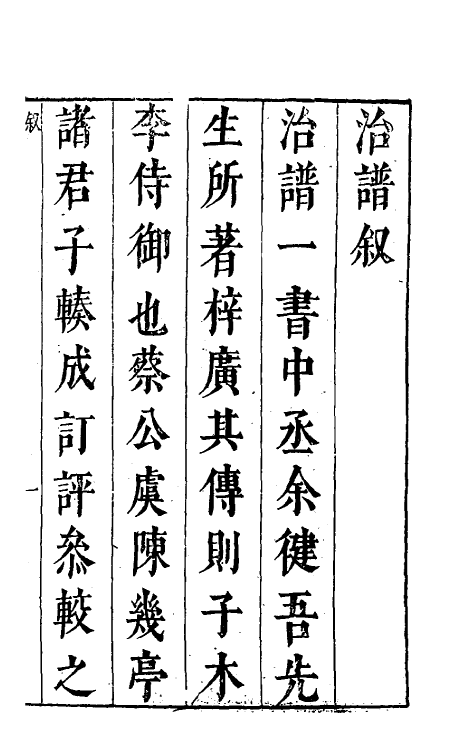 治譜叙
治譜一書中丞余健吾先
生所著梓廣其傳則子木
李侍御也蔡公虞陳幾亭
諸君子輳成訂評叅較之
叙
一